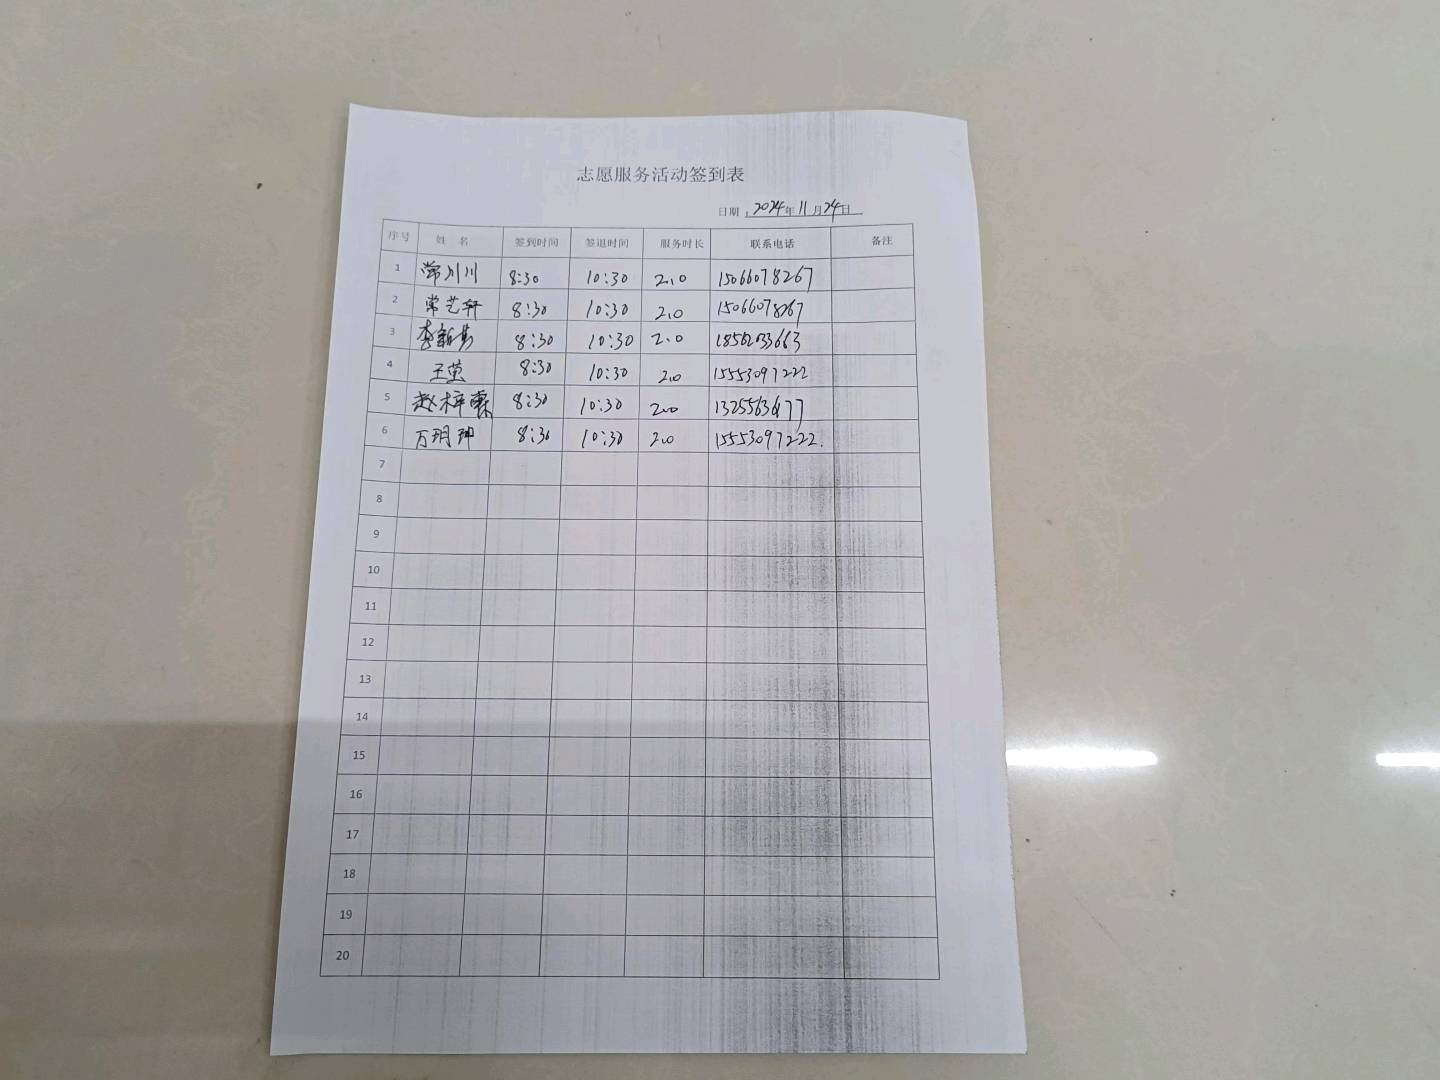 志愿服务活动签到表
日期：2024年11月24日
序号 姓 名 签到时间 签退时间 服务时长 联系电话 备注
1 常川川 8:30 10:30 2.0 15066078267
2 常艺轩 8:30 10:30 2.0 15066078267
3 8:30 10:30 2.0 18562033663
4 王萤 8:30 10:30 2.0 15553097222
5 赵梓霖 8:30 10:30 2.0
6 万玥珅 8:30 10:30 2.0 15553097222.
7
8
9
10
11
12
13
14
15
16
17
18
19
20